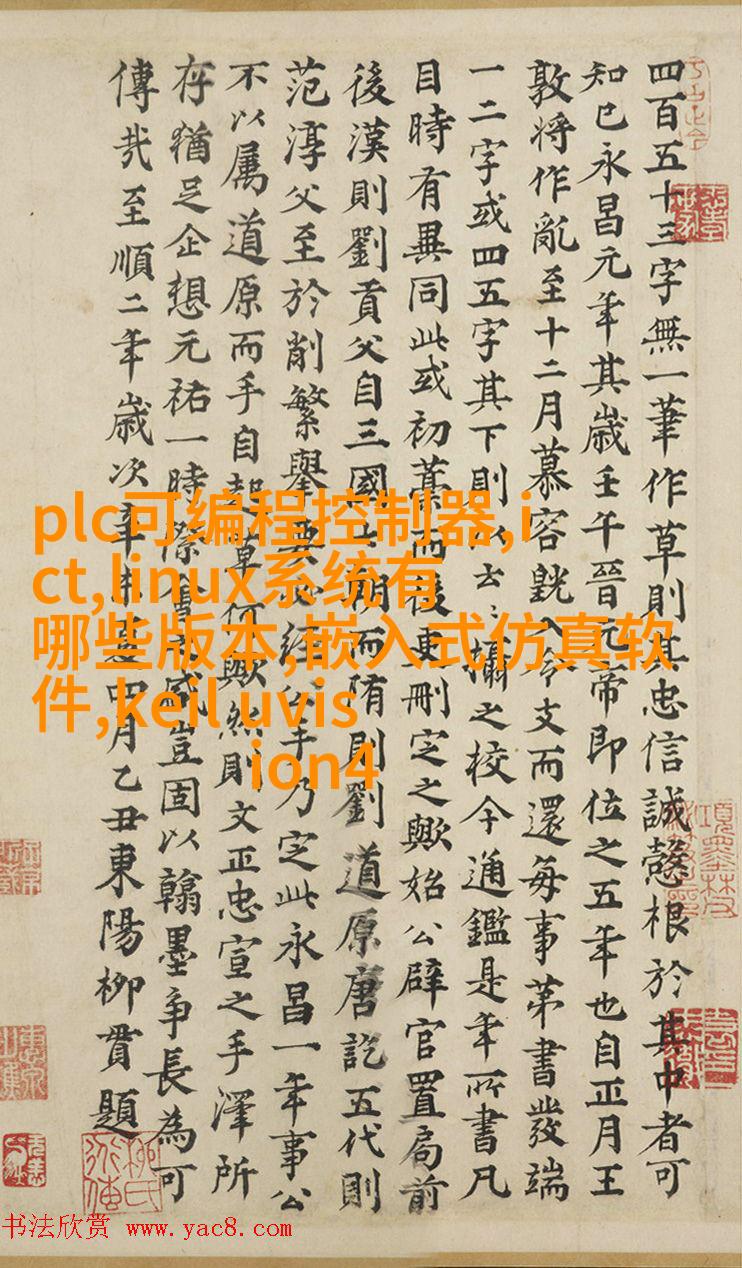 四百五十三字無一筆作草則其忠信誠愨根於其中者可
知已永昌元年其歲壬午晉元帝即位之五年也自正月王
敦將作亂至十二月慕容皝入令支而還每事第書發端
一二字或四五字其下則以云〻攝之校今通鑑是年所書凡
目時有異同此或初藁而後更刪定之歟始公辟官置局前
後漢則劉貢父自三國七朝而隋則劉道原唐訖五代則
范淳父至於削繁舉要必經公手乃定此永昌一年事公
不以屬道原而手自起草何歟然則文正忠宣之手澤所
存猶足企想元祐一時際會之盛豈固以翰墨爭長為可
傳哉至順二年歲次辛未夏四月乙丑東陽柳貫題
plc可编程控制器,i
ct,linux系统有
哪些版本,嵌入式仿真软
件,keil uvis
ion4
书法欣赏 www.yac8.com